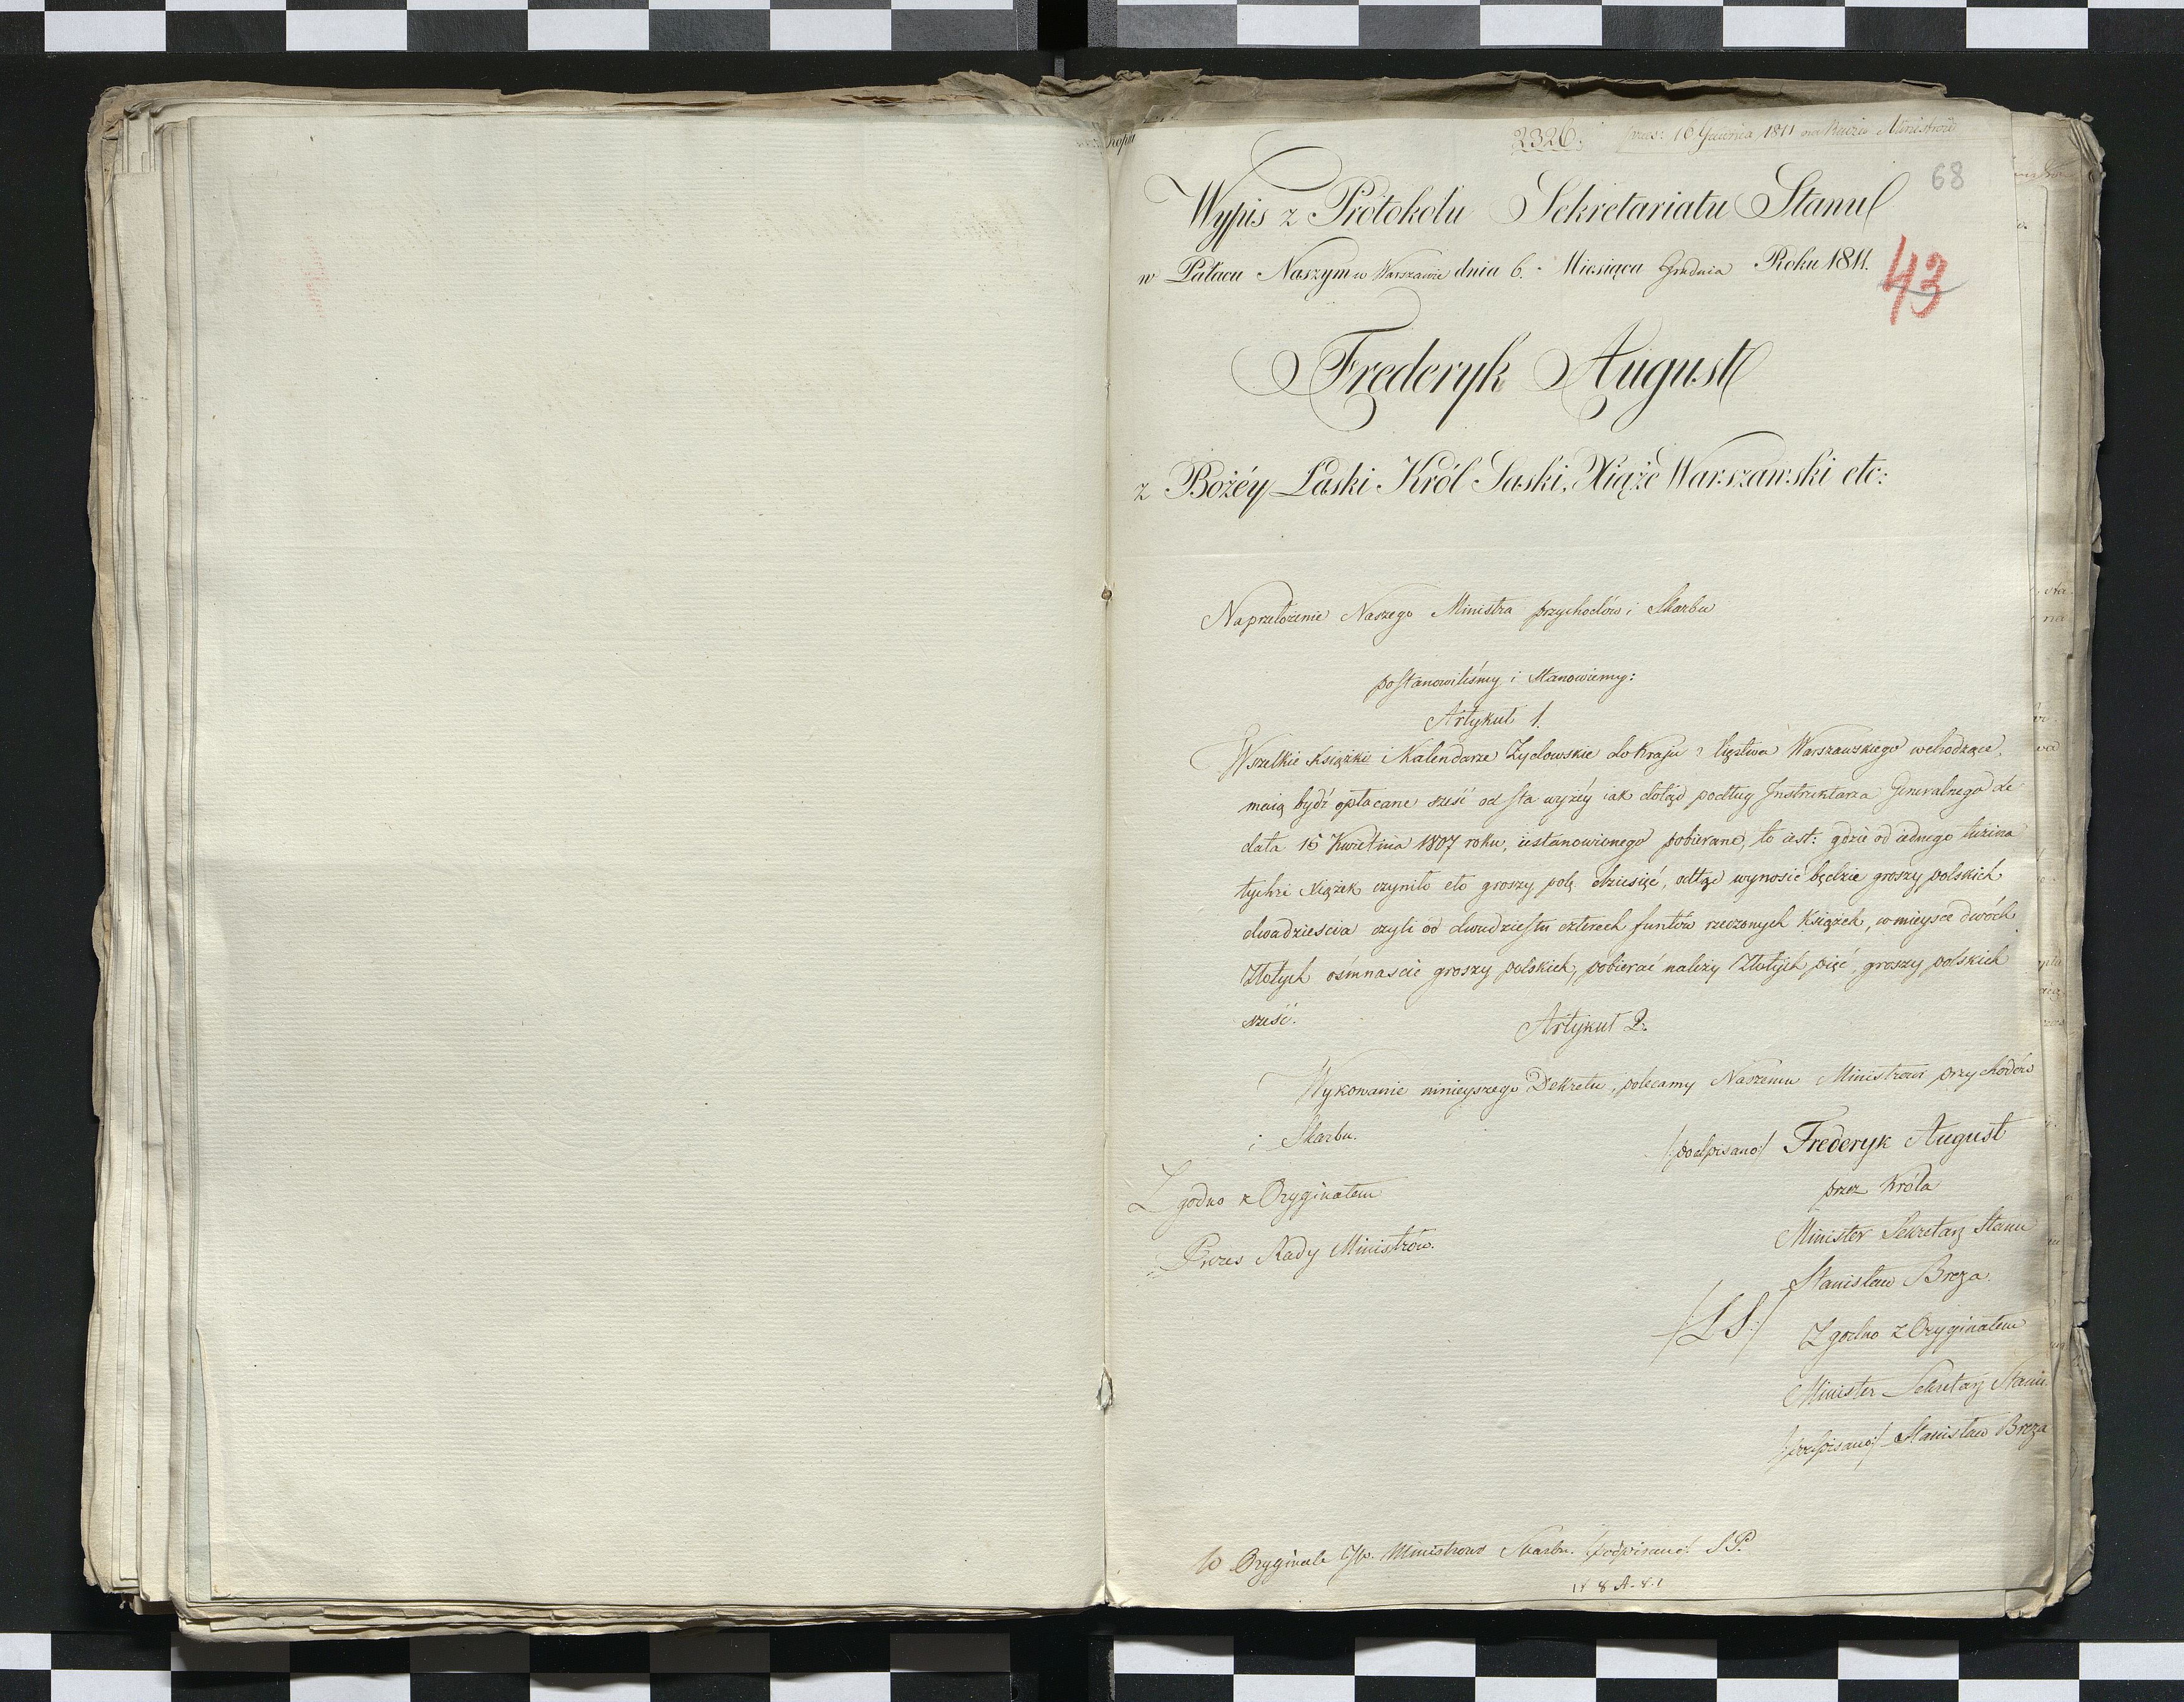 2326. 16 Grudnia 1811 na Radzie Ministrów
68
Wypis z Protokołu Sekretariatu Stanu
w Pałacu Naszym w Warszawie dnia 6. Miesiąca Grudnia Roku 1811.
43
Frederyk August
z Bożéy Łaski Król Saski, Xiąże Warszawski etc:
Na przełożenie Naszego Ministra przychodów i Skarbu
postanowiliśmy i stanowiemy:
Artykuł 1.
Wszelkie książki i Kalendarze Żydowskie do Kraju Warszawskiego wchodzące,
maią bydź opłacane sześć od sta wyżéy iak dotąd podług Instruktarza Generalnego de
data 15 Kwietnia 1807 roku, ustanowionego pobierane, to iest: gdzie od iednego tuzina
tychże Xiążek czyniło cło groszy pols. dziesięć, odtąd wynosić będzie groszy polskich
dwadzieścia czyli od dwudziestu czterech funtów rzeczonych Książek, w mieysce dwóch
Złotych ośmnaście groszy polskich, pobierać należy Złotych pięć, groszy polskich
sześć.
Artykuł 2.
Wykonanie ninieyszego Dekretu, polecamy Naszemu Ministrowi przychodów
i Skarbu.
/podpisano/ Frederyk August
przez Króla
Minister Sekretarz Stanu
Stanisław Breza.
/LS/
Zgodno z Oryginałem
Minister Sekretarz Stanu
/podpisano/ Stanisław Breza
Zgodno z Oryginałem
Prezes Rady Ministrów.
W Oryginale JW. Ministrowi Skarbu. /podpisano/ S.P.